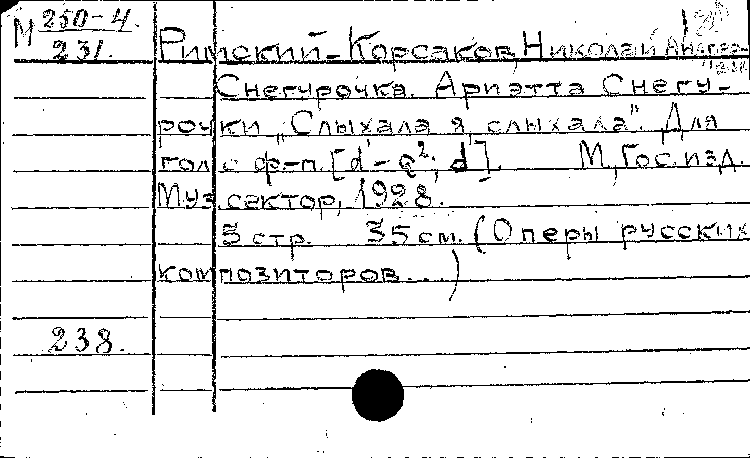 М 250-4.
231.
Римский-Корсаков, Николай Андрее-
Снегурочка. Ариэтта Снегу-
рочки „Слыхала я, слыхала". Для
гол с ф-п. [d'-g²; d']. М, Гос. изд.
Муз. сектор, 1928.
5 стр. 35 см. (Оперы русских
композиторов...)
238.